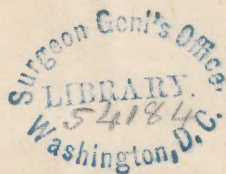 Surgeon Genl's Office,
LIBRARY.
54184
Washington, D.C.